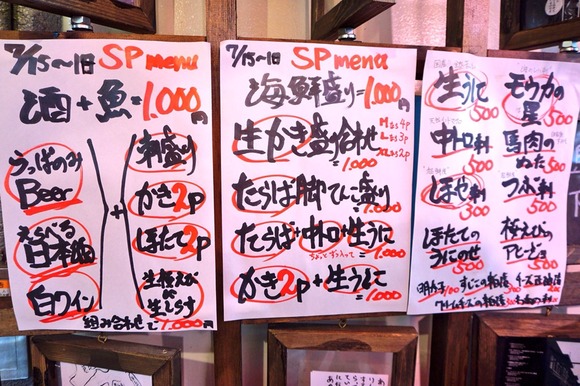 7/15〜1日 SP menu
酒+魚=1.000円
らっぱのみ
Beer
えらべる
日本酒
白ワイン
+
刺盛り
かき2P
ほたて2P
生桜えび
か
生しらす
組み合わせで1.000円
7/15〜1日 SP menu
海鮮盛り=1.000円
生かき盛り合わせ
Mなら4P
Lなら3P
XLなら2P
=1.000
たらば脚てんこ盛り
1.000
たらば+中トロ+生うに
ちょっとずつ入って=1.000
かき2P+生うに
=1.000
生うに
500
中トロ刺
500
ほや刺
300
ほたての
うにのせ
500
モウカの
星
500
馬肉の
ぬた
500
ツブ刺
500
桜えびの
アヒージョ
500